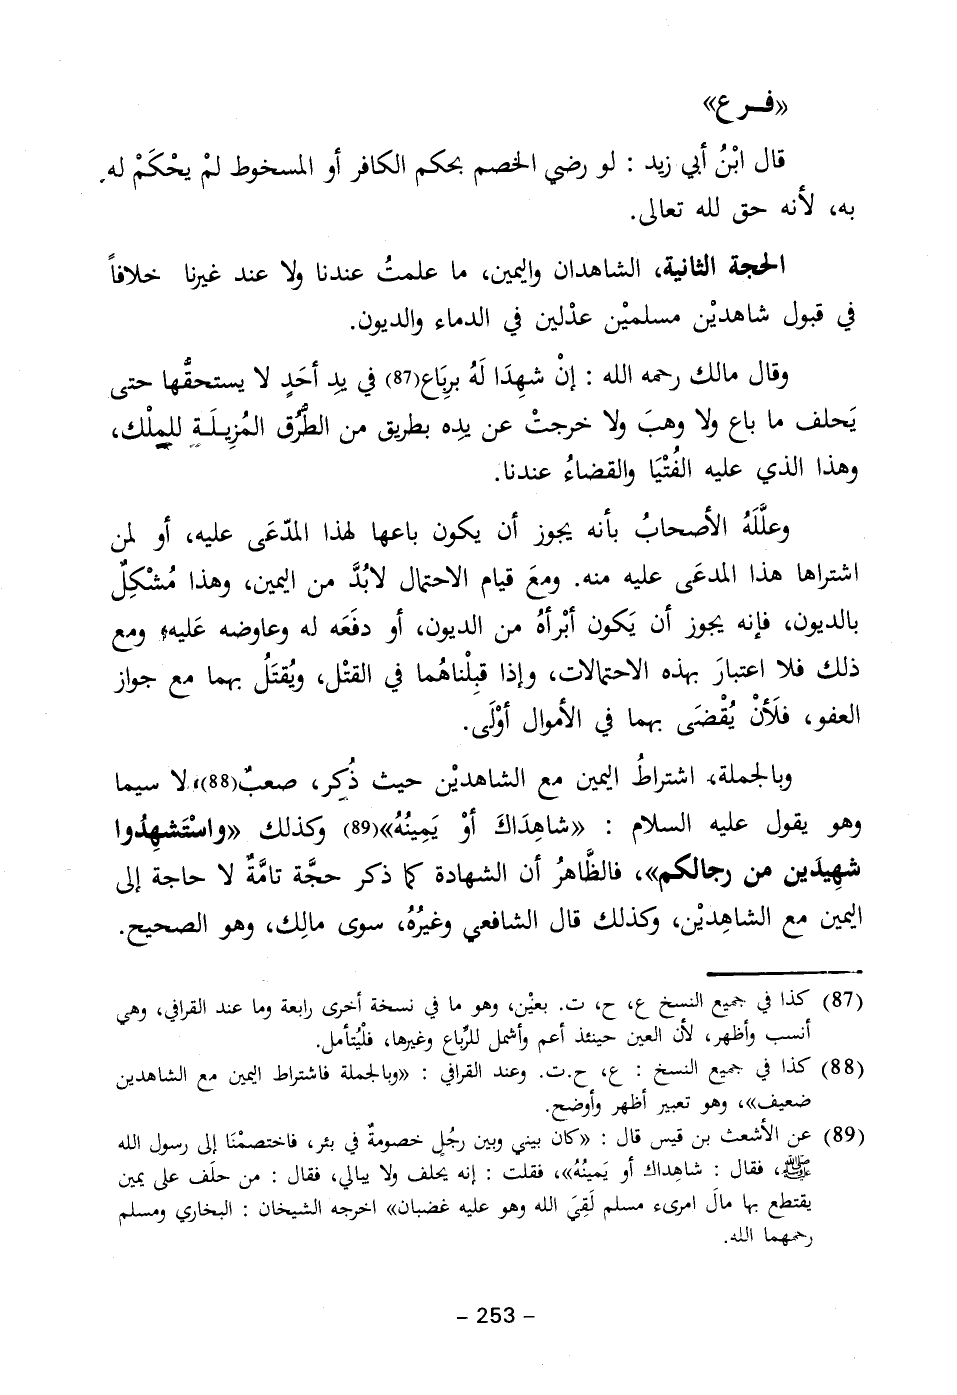 «فـرع»
قال ابْنُ أبي زيد : لو رضي الخصم بحكم الكافر أو المسخوط لمْ يحْكَمْ له
به، لأنه حق لله تعالى.
الحجة الثانية، الشاهدان واليمين، ما علمتُ عندنا ولا عند غيرنا خلافاً
في قبول شاهديْن مسلميْن عدْلين في الدماء والديون.
وقال مالك رحمه الله : إنْ شهِدَا لَهُ برِبَاع(87) في يدِ أحَدٍ لا يستحقُّها حتى
يَحلف ما باع ولا وهبَ ولا خرجتْ عن يدِه بطريق من الطُّرُق المُزِيلَةِ للمِلْك،
وهذا الذي عليه الفُتْيَا والقضاءُ عندنا.
وعلَّلَهُ الأصحابُ بأنه يجوز أن يكون باعها لهذا المدّعَى عليه، أو لمن
اشتراها هذا المدعَى عليه منه. ومعَ قيام الاحتمال لابُدَّ من اليمين، وهذا مُشْكِلٌ
بالديون، فإنه يجوز أن يَكون أبْرأهُ من الديون، أو دفَعَه له وعاوضه عَليه، ومع
ذلك فلا اعتبارَ بهذه الاحتمالات، وإذا قبِلْناهُما في القتْل، ويُقتَلُ بهما مع جواز
العفو، فلَأنْ يُقْضَى بهما في الأموال أوْلَى.
وبالجملة، اشتراطُ اليمين مع الشاهديْن حيث ذُكِر، صعبٌ(88)، لا سيما
وهو يقول عليه السلام : «شاهِدَاكَ أوْ يَمِينُهُ»(89) وكذلك «واسْتَشهِدُوا
شهِيدَين من رجالكم»، فالظَّاهرُ أن الشهادة كما ذكر حجَّة تامَّةٌ لا حاجة إلى
اليمين مع الشاهِديْن، وكذلك قال الشافعي وغيرُهُ، سوى مالِك، وهو الصحيح.
(87) كذا في جميع النسخ ع، ح، ت. بعيْن، وهو ما في نسخة أخرى رابعة وما عند القرافي، وهي
أنسب وأظهر، لأن العين حينئذ أعم وأشمل للرِّباع وغيرها، فلْيُتأمل.
(88) كذا في جميع النسخ : ع، ح.ت. وعند القرافي : «وبالجملة فاشتراط اليمين مع الشاهدين
ضعيف»، وهو تعبير أظهر وأوضح.
(89) عن الأشعث بن قيس قال : «كان بيني وبين رجُلٍ خصومةٌ في بئر، فاختصمْنَا إلى رسول الله
ﷺ، فقال : شاهِداك أو يَمينُهُ»، فقلت : إنه يحلف ولا يبالي، فقال : من حلَف على يمين
يقتطع بها مالَ امرىء مسلم لَقِيَ الله وهو عليه غضبان» اخرجه الشيخان : البخاري ومسلم
رحمهما الله.
- 253 -